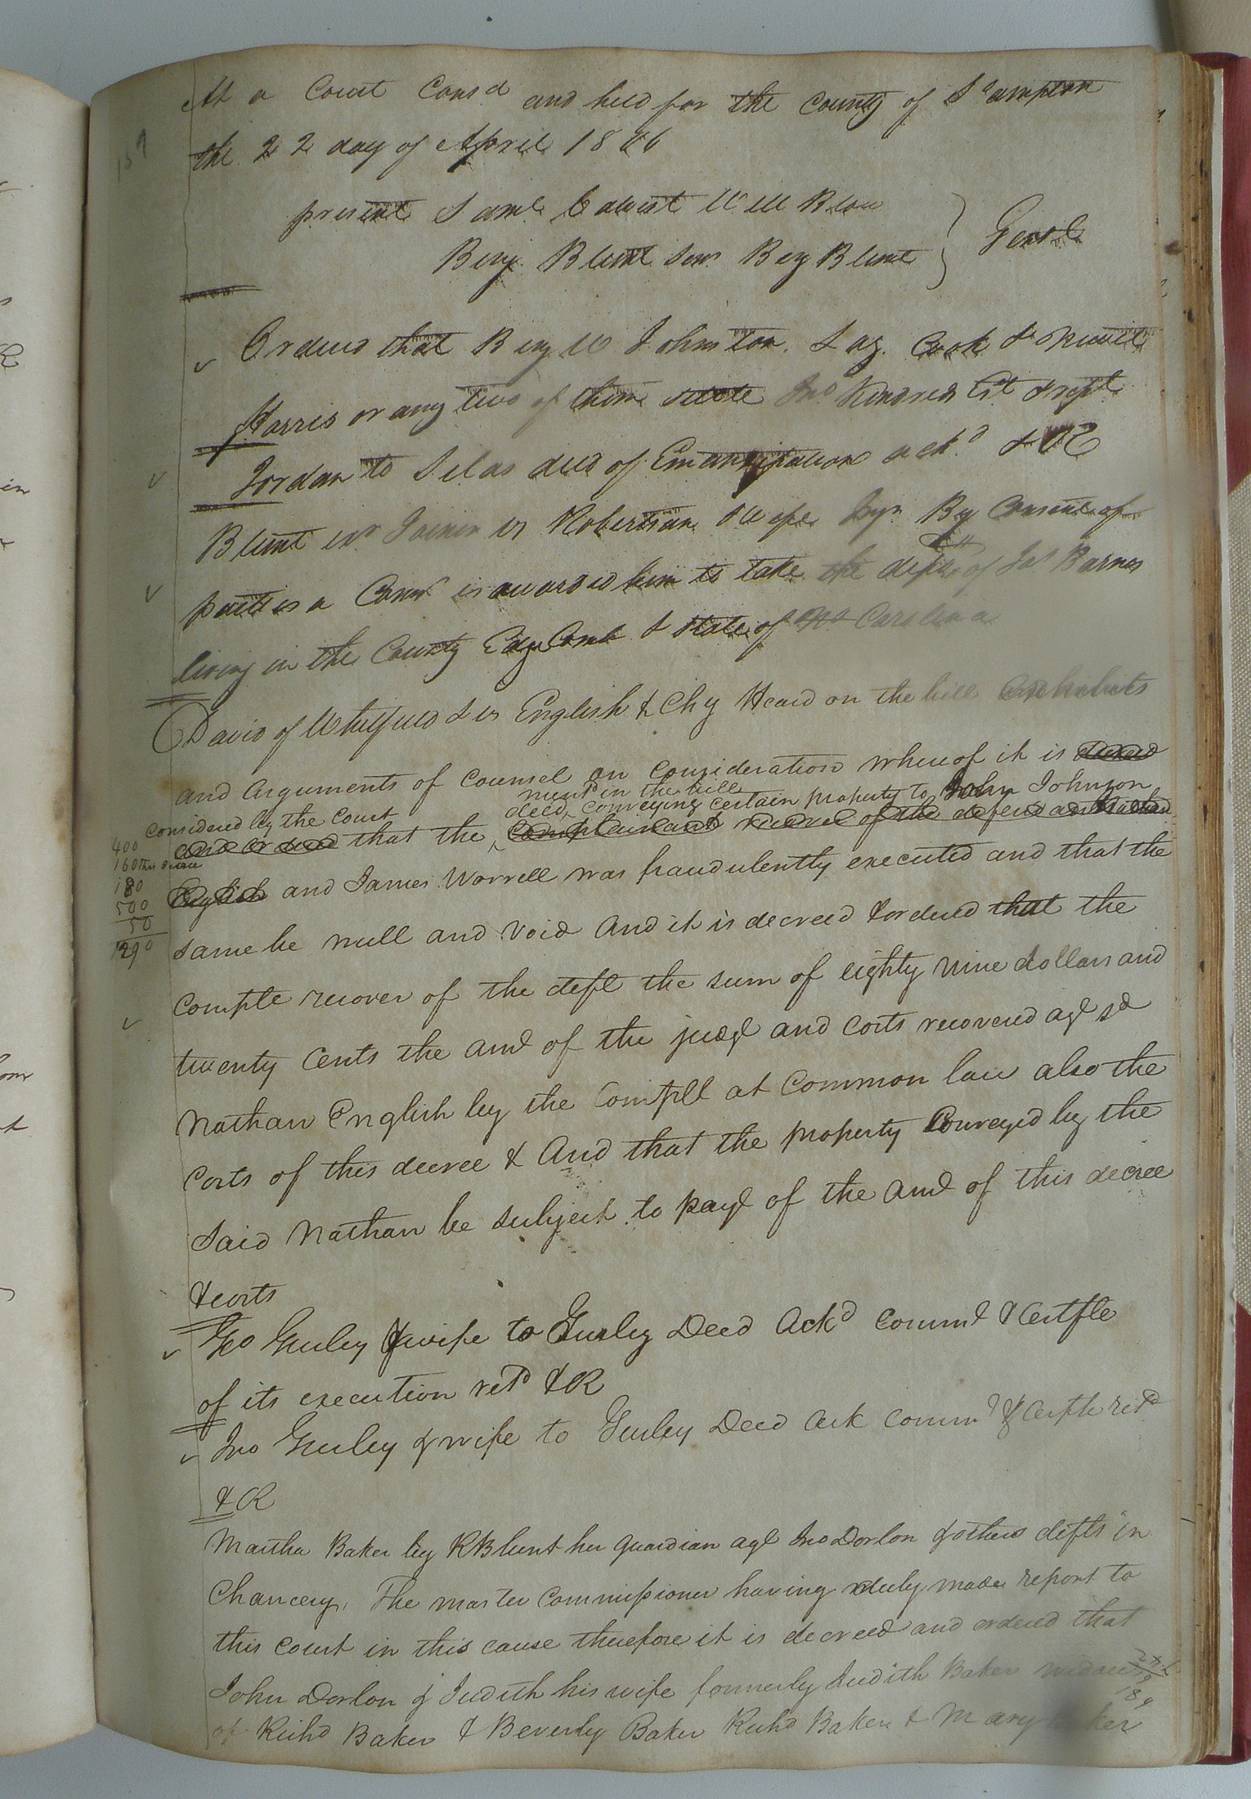 At a Court Cons'd and held for the County of S'ampton
the 22 day of April 1806
present Saml Calvert Will Blow
Benj. Blunt Senr Benj Blunt } Gent
Ordered that Benj W Johnston. Laz. Cook &
Harris or any two of them settle Jno Kindred Est Acpt
Jordan to Silas deed of Emancipation ackd & OR
Blunt exr Joiner vs Robertson & wife Inj. By Consent of
parties a Comn is awarded him to take the depo of Jas Barnes
living in the County Edgecomb & State of No Carolina
David of Whitfield & vs English & Chy Heard on the bill and exhibits
and Arguments of Counsel on Consideration whereof it is decreed
ment'd in the bill
considered by the Court deed conveying certain property to John Johnson
and ordered that the Complainant recover of the defendant Nathan
400
160
180
500
50
1290
English and James Worrell was fraudulently executed and that the
same be null and void And it is decreed & ordered that the
Complt recover of the deft the sum of eighty nine dollars and
twenty Cents the amt of the judgt and costs recovered agt sd
Nathan English by the Complt at Common law also the
Costs of this decree & And that the property Conveyed by the
Said Nathan be subject to payt of the amt of this decree
& costs
Jno Gurley & wife to Gurley Deed Ackd Commn & Certfte
of its execution retd & R
Jno Gurley & wife to Gurley Deed Ack Commn & Certfte retd
& R
Martha Baker by R Blunt her guardian agt Jno Dorlon & others defts in
Chancery, The master Commissioner having duly made report to
this Court in this cause therefore it is decreed and ordered that
John Dorlon & Judith his wife formerly Judith Baker widow
of Richd Baker & Beverly Baker Richd Baker & Mary Baker